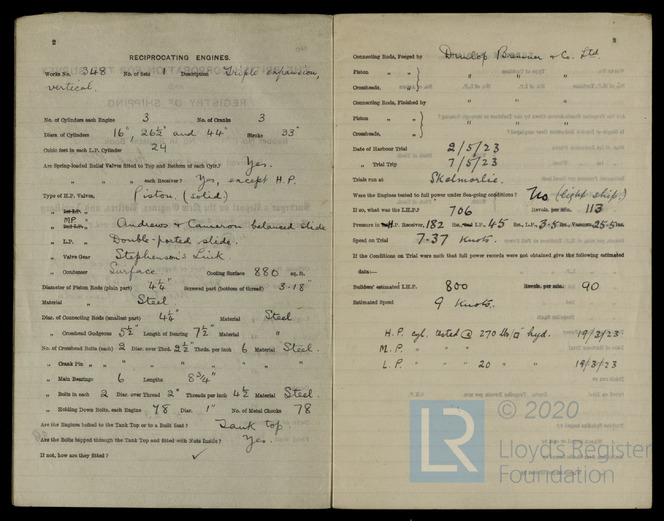 2
RECIPROCATING ENGINES.
Works No. 348 No. of Sets 1 Description Triple expansion,
vertical.
No. of Cylinders each Engine 3 No. of Cranks 3
Diars. of Cylinders 16", 26½" and 44" Stroke 33"
Cubic feet in each L.P. Cylinder 29
Are Spring-loaded Relief Valves fitted to Top and Bottom of each Cylr.? Yes.
" " " each Receiver? Yes, except H.P.
Type of H.P. Valves, Piston. (solid)
" 1st I.P. "
MP
" 2nd I.P. " Andrews & Cameron balanced slide
" L.P. " Double-ported slide.
" Valve Gear Stephenson's Link
" Condenser Surface Cooling Surface 880 sq. ft.
Diameter of Piston Rods (plain part) 4¼" Screwed part (bottom of thread) 3·18"
Material Steel
Diar. of Connecting Rods (smallest part) 4¼" Material Steel
" Crosshead Gudgeons 5½" Length of Bearing 7½" Material "
No. of Crosshead Bolts (each) 2 Diar. over Thrd. 2½" Thrds. per inch 6 Material Steel.
" Crank Pin " " " " " "
" Main Bearings 6 Lengths 8¾"
" Bolts in each 2 Diar. over Thread 2" Threads per inch 4½ Material Steel.
" Holding Down Bolts, each Engine 78 Diar. 1" No. of Metal Chocks 78
Are the Engines bolted to the Tank Top or to a Built Seat? Tank top
Are the Bolts tapped through the Tank Top and fitted with Nuts Inside? Yes.
If not, how are they fitted? ✓
3
Connecting Rods, Forged by Dunlop Bremner & Co. Ltd
Piston " "
Crossheads, "
Connecting Rods, Finished by
Piston " "
Crossheads, "
Date of Harbour Trial 2/5/23
" Trial Trip 7/5/23
Trials run at Skelmorlie.
Were the Engines tested to full power under Sea-going conditions? No (light ship.)
If so, what was the I.H.P.? 706 Revols. per min. 113
Pressure in H.P. Receiver, 182 lbs., I.P. 45 lbs., L.P. 3·5 lbs., Vacuum 25·5 ins.
Speed on Trial 7·37 Knots.
If the Conditions on Trial were such that full power records were not obtained give the following estimated
data:—
Builders' estimated I.H.P. 800 Revols. per min. 90
Estimated Speed 9 Knots.
H.P. cyl. tested @ 270 lbs/□" hyd. 19/3/23
M.P. " "
L.P. " " 20 " " 19/3/23
© 2020
LR
Lloyd's Register
Foundation